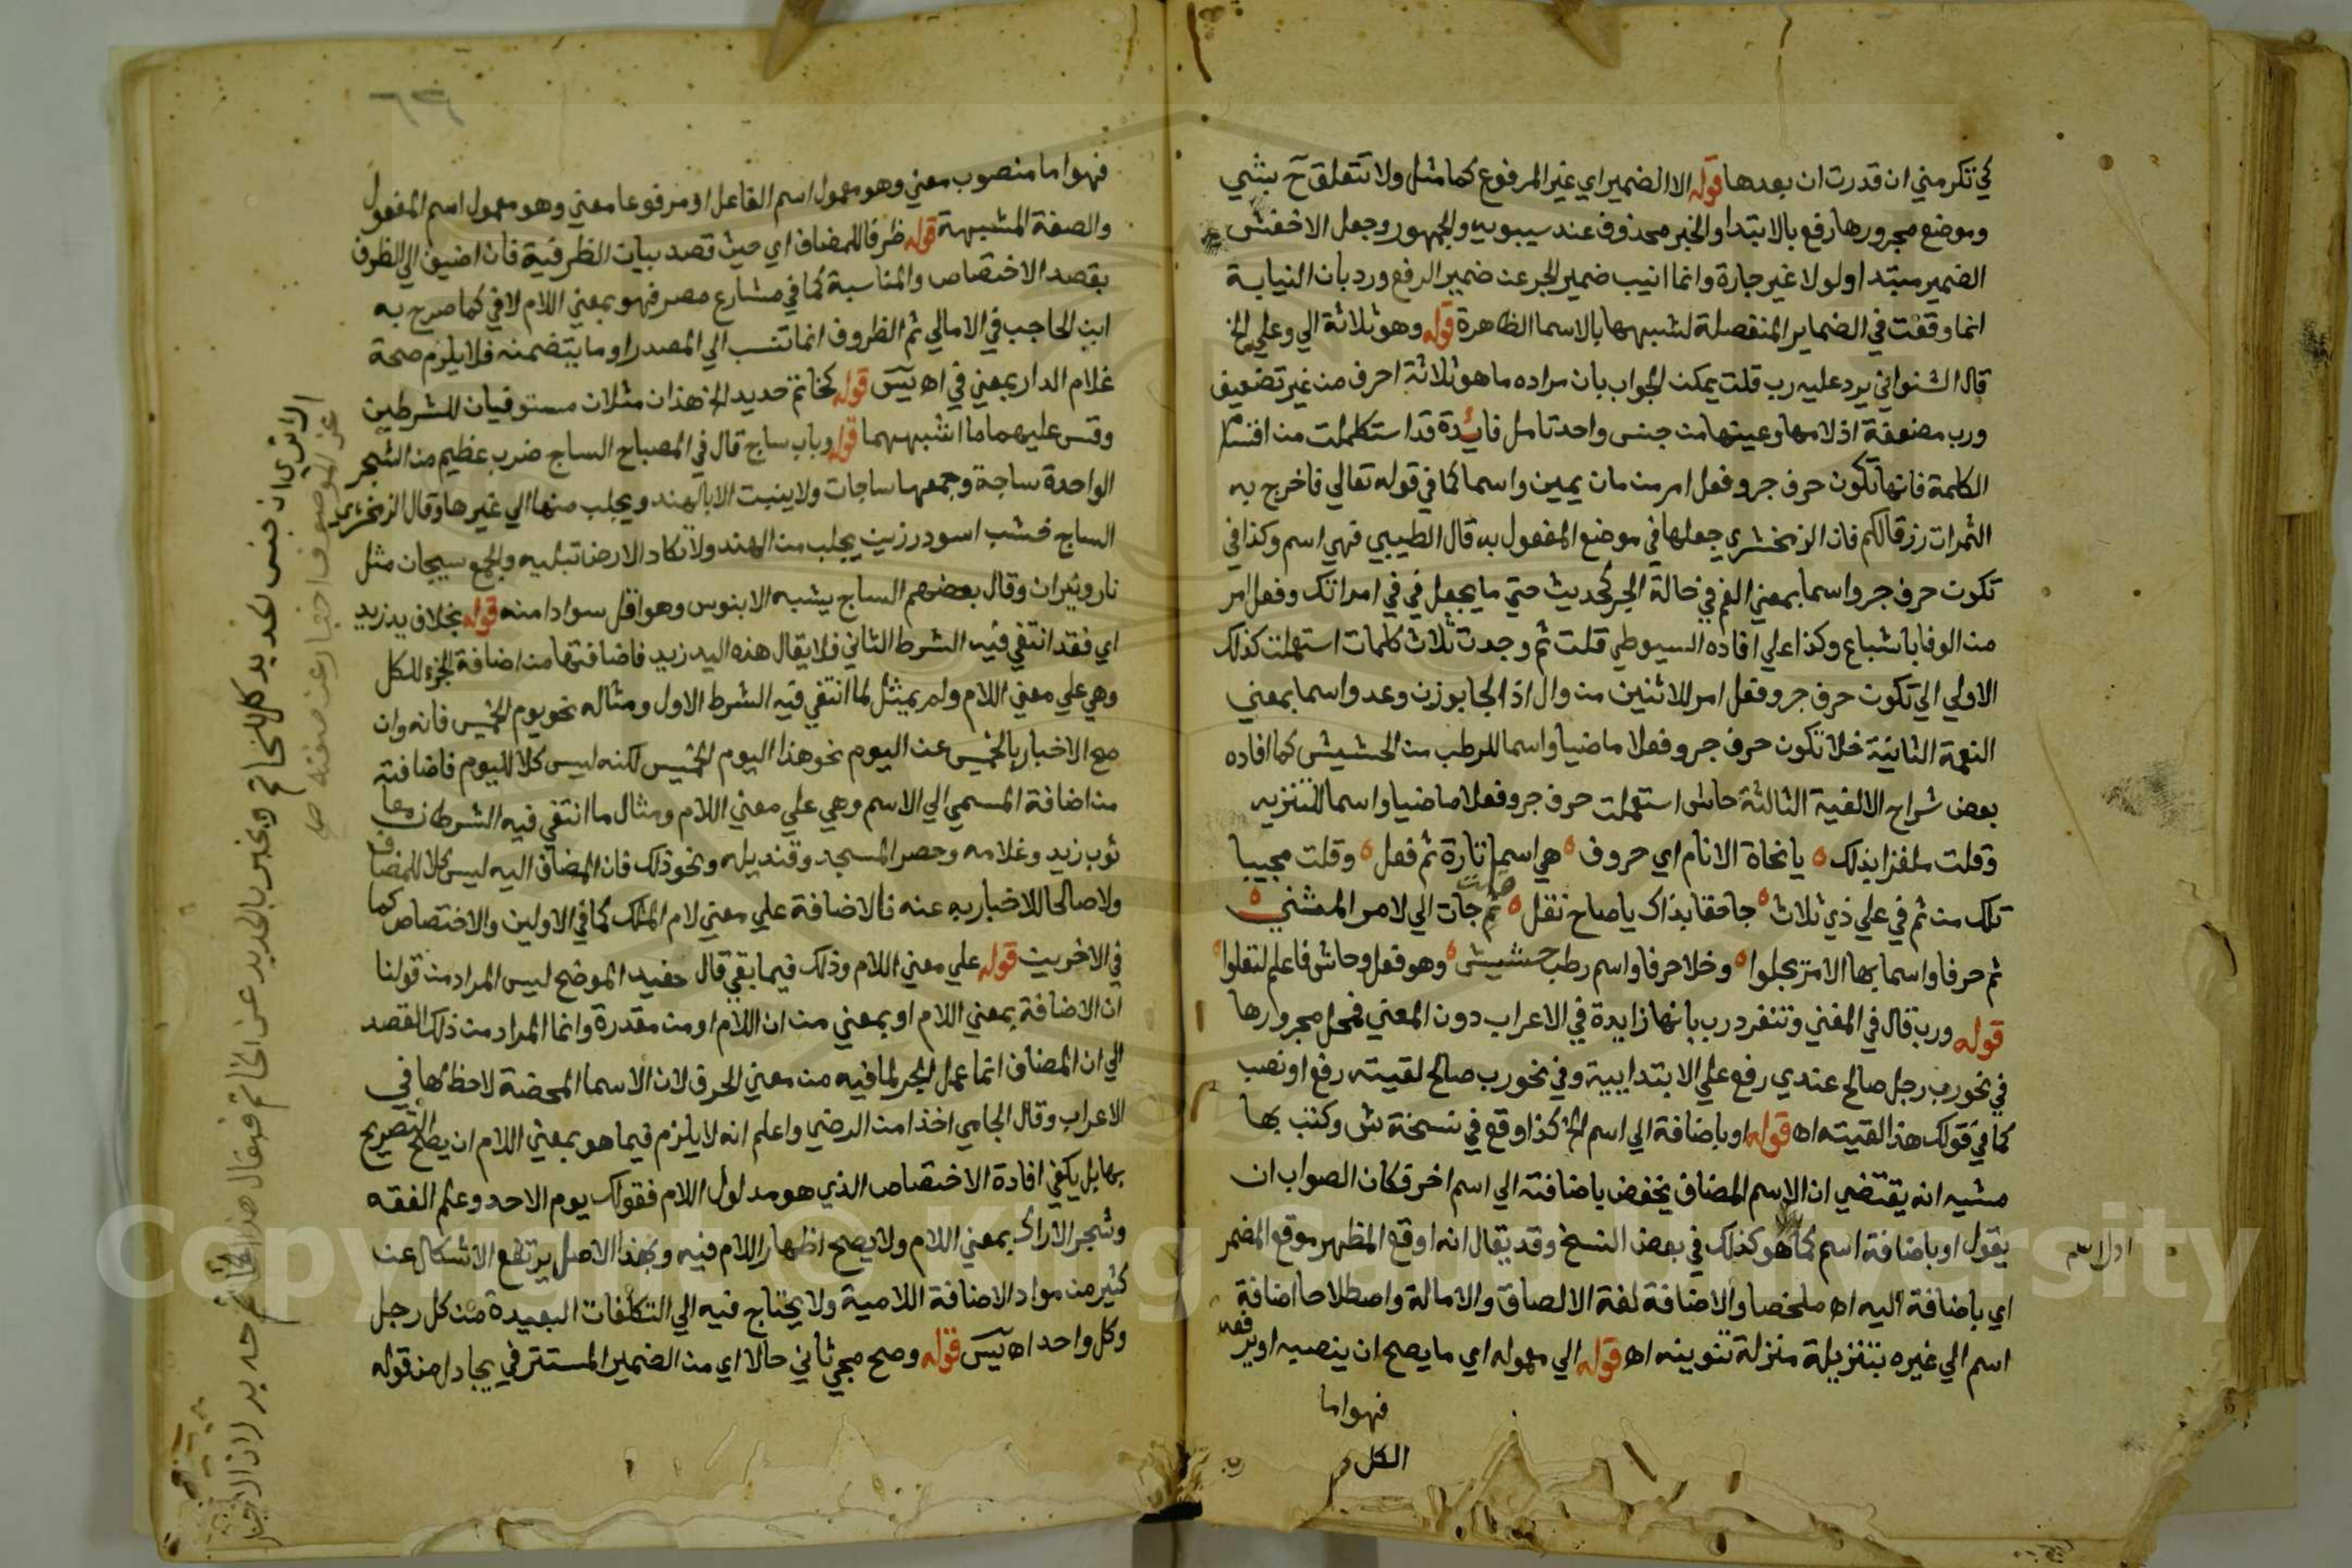 كي تكرمني ان قدرت ان بعدها قوله الا الضمير اي غير المرفوع كما مثل ولا تتعلق ح بشي
وموضع مجرورها رفع بالابتدا والخبر محذوف عند سيبويه والجمهور وجعل الاخفش
الضمير مبتدا ولولا غير جارة وانما انيب ضمير الجر عن ضمير الرفع ورد بان النيابة
انما وقعت في الضماير المنفصلة لشبهها بالاسما الظاهرة قوله وهو ثلاثة الي وعلي الخ
قال الشنواني يرد عليه رب قلت يمكن الجواب بان مراده ما هو ثلاثة احرف من غير تضعيف
ورب مضعفة اذ لامها وعينها من جنس واحد تامل فائدة قد استكملت من اقسام
الكلمة فانها تكون حرف جر وفعل امر من مان يمين واسما كما في قوله تعالي فاخرج به
الثمرات رزقا لكم فان الزمخشري جعلها في موضع المفعول به قال الطيبي فهي اسم وكذا في
تكون حرف جر واسما بمعني الفم في حالة الجر كحديث حتي ما يجعل في في امراتك وفعل امر
من الوفا باشباع وكذا علي افاده السيوطي قلت ثم وجدت ثلاث كلمات استعملت كذلك
الاولي الي تكون حرف جر وفعل امر للاثنين من وال اذا لجا بوزن وعد واسما بمعني
النعمة الثانية خلا تكون حرف جر وفعلا ماضيا واسما للرطب من الحشيش كما افاده
بعض شراح الالفية الثالثة حاش استعملت حرف جر وفعلا ماضيا واسما للتنزيه
وقلت ملغزا بذلك ه يا نحاة الانام اي حروف ه هي اسما تارة ثم فعل ه وقلت مجيبا
تلك من ثم في علي ذي ثلاث ه جا حقا بذاك يا صاح نقل ه ثم جات الي لامر المثني ه
ثم حرفا واسما بها الامر يجلوا ه وخلا حرفا واسم رطب حشيش ه وهو فعل وحاش فاعلم لتعلوا ه
قوله ورب قال في المغني وتنفرد رب بانها زايدة في الاعراب دون المعني فمحل مجرورها
في نحو رب رجل صالح عندي رفع علي الابتدايية وفي نحو رب صالح لقيته رفع او نصب
كما في قولك هذا لقيته اه قوله او باضافة الي اسم الخ كذا وقع في نسخة ش وكتب بها
مشيه انه يقتضي ان الاسم المضاف يخفض باضافته الي اسم اخر فكان الصواب ان
يقول او باضافة اسم كما هو كذلك في بعض النسخ وقد يقال انه اوقع المظهر موقع المضمر
اي باضافة اليه اه ملخصا والاضافة لغة الالصاق والامالة واصطلاحا اضافة
اسم الي غيره بتنزيله منزلة تنوينه اه قوله الي معموله اي ما يصح ان ينصبه او يرفعه
فهو اما
الكل
فهو اما منصوب معني وهو معمول اسم الفاعل او مرفوعا معني وهو معمول اسم المفعول
والصفة المشبهة قوله ظرفا للمضاف اي حيث قصد بيان الظرفية فان اضيف الي الظرف
بقصد الاختصاص والمناسبة كما في مشارع مصر فهو بمعني اللام لا في كما صرح به
ابن الحاجب في الامالي ثم الظروف انما تنسب الي المصدر او ما يتضمنه فلا يلزم صحة
غلام الدار بمعني في اه يس قوله كخاتم حديد الخ هذان مثلان مستوفيان للشرطين
وقس عليهما ما اشبههما قوله وباب ساج قال في المصباح الساج ضرب عظيم من الشجر
الواحدة ساجة وجمعها ساجات ولا ينبت الا بالهند ويجلب منها الي غيرها وقال الزمخشري
الساج خشب اسود رزين يجلب من الهند ولا تكاد الارض تبليه والجمع سيجان مثل
نار ونيران وقال بعضهم الساج يشبه الابنوس وهو اقل سوادا منه قوله بخلاف يد زيد
اي فقد انتفي فيه الشرط الثاني فلا يقال هذه اليد زيد فاضافتها من اضافة الجزء للكل
وهي علي معني اللام ولم يمثل لما انتفي فيه الشرط الاول ومثاله نحو يوم الخميس فانه وان
صح الاخبار بالخميس عن اليوم نحو هذا اليوم الخميس لكنه ليس كلا لليوم فاضافته
من اضافة المسمي الي الاسم وهي علي معني اللام ومثال ما انتفي فيه الشرطان معا
ثوب زيد وغلامه وحصر المسجد وقنديله ونحو ذلك فان المضاف اليه ليس كلا للمضاف
ولا صالحا للاخبار به عنه فالاضافة علي معني لام الملك كما في الاولين والاختصاص كما
في الاخريت قوله علي معني اللام وذلك فيما بقي قال حفيد الموضح ليس المراد من قولنا
ان الاضافة بمعني اللام او بمعني من ان اللام او من مقدرة وانما المراد من ذلك القصد
الي ان المضاف انما عمل الجر لما فيه من معني الحرف لان الاسما المحضة لا حظ لها في
الاعراب وقال الجامي اخذا من الرضي واعلم انه لا يلزم فيما هو بمعني اللام ان يصح التصريح
بها بل يكفي افادة الاختصاص الذي هو مدلول اللام فقولك يوم الاحد وعلم الفقه
وشجر الاراك بمعني اللام ولا يصح اظهار اللام فيه وبهذا الاصل يرتفع الاشكال عن
كثير من مواد الاضافة اللامية ولا يحتاج فيه الي التكلفات البعيدة من كل رجل
وكل واحد اه يس قوله وصح مجي ثاني حالا اي من الضمير المستتر في يجادل من قوله
الا تري ان جنس الحديد كل للخاتم ويخبر بالحديد عن الخاتم فيقال هذا الخاتم حديد اذ الاخبار
عن الموصوف اخبار عن صفته صح
Copyright © King Saud University